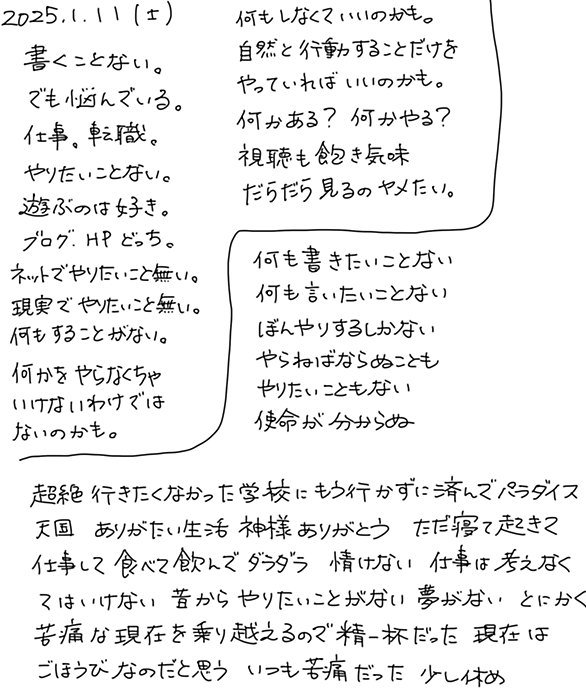 2025.1.11(土)
書くことない。
でも悩んでいる。
仕事。転職。
やりたいことない。
遊ぶのは好き。
ブログ. HP どっち。
ネットでやりたいこと無い。
現実でやりたいこと無い。
何もすることがない。
何かをやらなくちゃ
いけないわけでは
ないのかも。
何もしなくていいのかも。
自然と行動することだけを
やっていればいいのかも。
何かある? 何かやる?
視聴も飽き気味
だらだら見るのヤメたい。
何も書きたいことない
何も言いたいことない
ぼんやりするしかない
やらねばならぬことも
やりたいこともない
使命が分からぬ
超絶行きたくなかった学校にもう行かずに済んでパラダイス
天国 ありがたい生活 神様ありがとう ただ寝て起きて
仕事して食べて飲んでダラダラ 情けない 仕事は考えなく
てはいけない 昔からやりたいことがない 夢がない とにかく
苦痛な現在を乗り越えるので精一杯だった 現在は
ごほうびなのだと思う いつも苦痛だった 少し休め